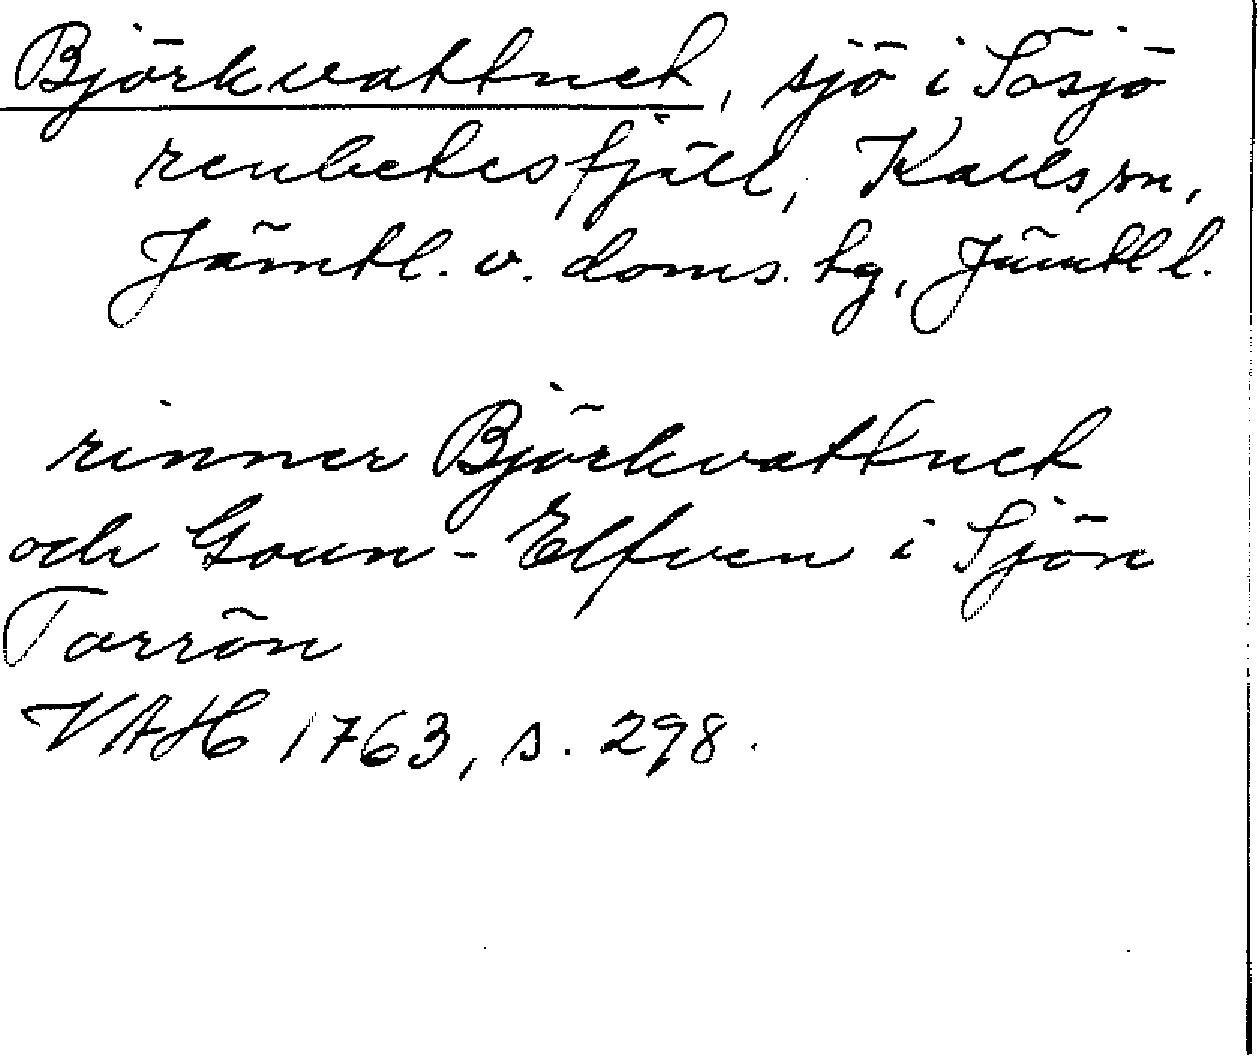 Björkvattnet, sjö i Sösjö
renbetesfjäll, Kalls sn,
Jämtl. v. doms. tg, Jämtl l.
rinner Björkvattnet
och Goun-Elfven i Sjön
Torrön
VAH 1763, s. 298.